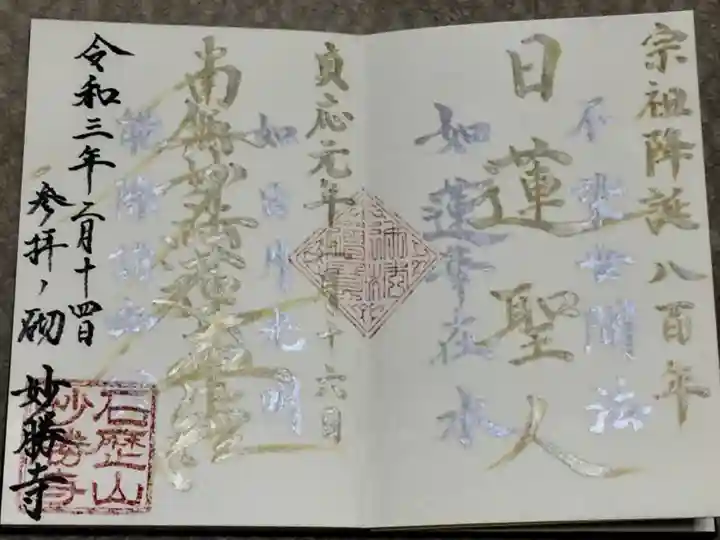 宗祖降誕八百年
不染世間法
日蓮聖人
如蓮華在水
貞応元年二月十六日
如日月光明
南無妙法蓮華経
能除諸幽冥
令和三年二月十四日
参拝ノ砌
妙勝寺
石歴山
妙勝寺